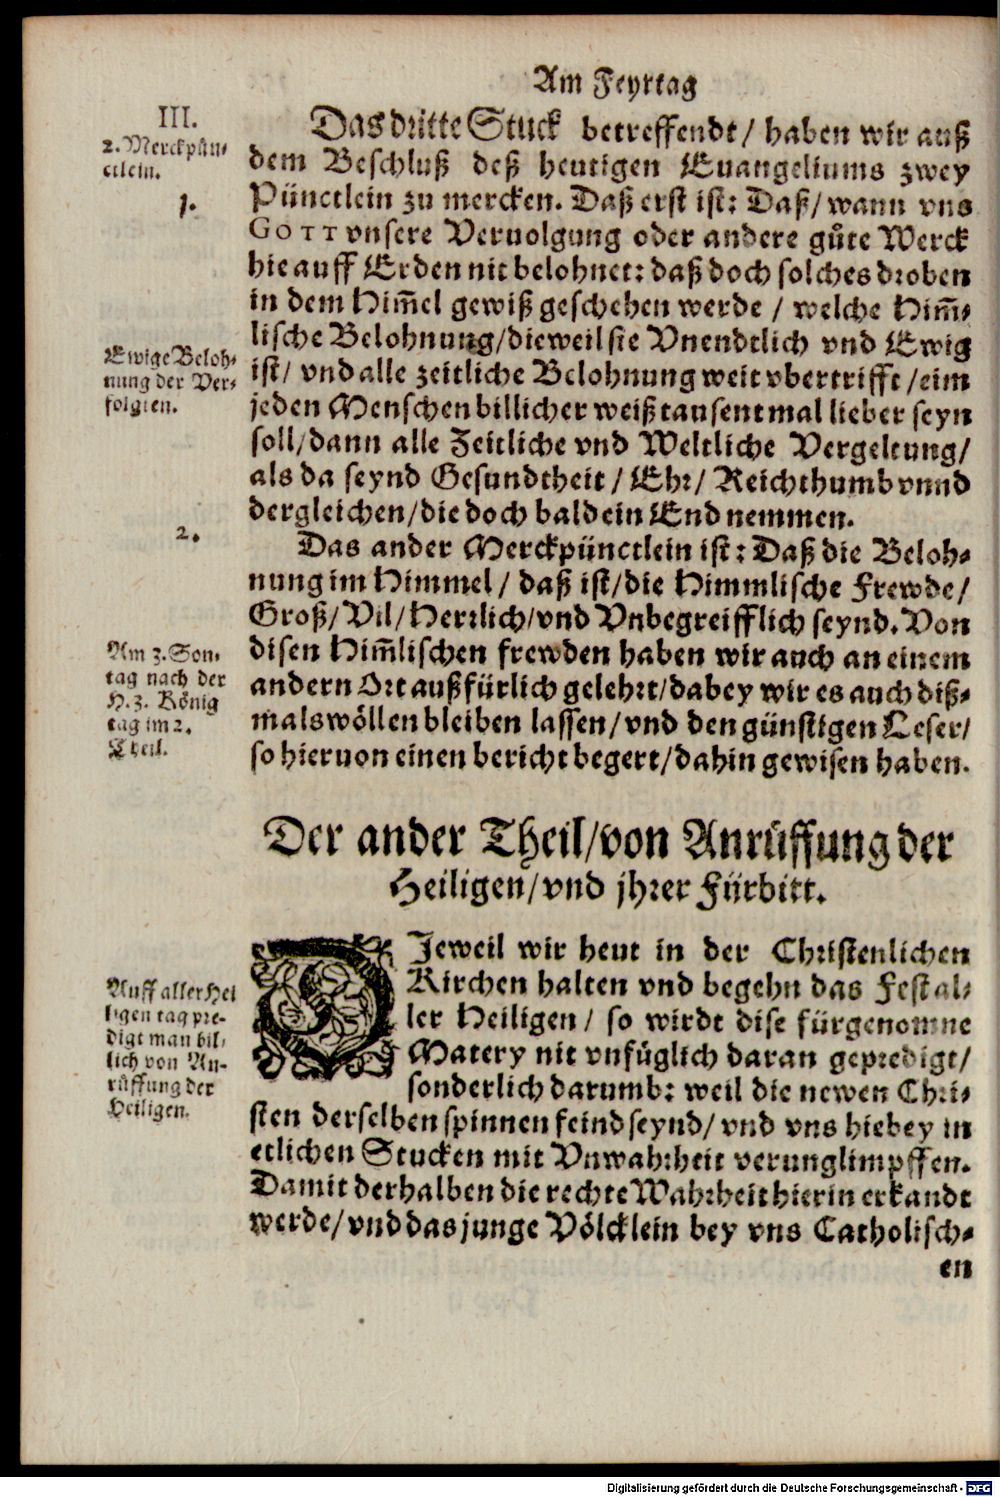 Am Feyrtag
III.
2. Merckpün-
ctlein.
1.
Das dritte Stuck betreffendt / haben wir auß
dem Beschluß deß heutigen Euangeliums zwey
Pünctlein zu mercken. Daß erst ist: Daß / wann vns
GOTT vnsere Veruolgung oder andere gůte Werck
hie auff Erden nit belohnet: daß doch solches droben
in dem Him̃el gewiß geschehen werde / welche Him̃-
lische Belohnung / dieweil sie Vnendtlich vnd Ewig
ist / vnd alle zeitliche Belohnung weit vbertrifft / eim
jeden Menschen billicher weiß tausent mal lieber seyn
soll / dann alle Zeitliche vnd Weltliche Vergeltung /
als da seynd Gesundtheit / Ehr / Reichthumb vnnd
dergleichen / die doch bald ein End nemmen.
Ewige Beloh-
nung der Ver-
folgten.
2.
Das ander Merckpünctlein ist: Daß die Beloh-
nung im Himmel / daß ist / die Himmlische Frewde /
Groß / Vil / Herrlich / vnd Vnbegreifflich seynd. Von
disen Him̃lischen frewden haben wir auch an einem
andern Ort außfürlich gelehrt / dabey wir es auch diß-
mals wöllen bleiben lassen / vnd den günstigen Leser /
so hieruon einen bericht begert / dahin gewisen haben.
Am 3. Son-
tag nach der
H. 3. König
tag im 2.
Theil.
Der ander Theil / von Anrůffung der
Heiligen / vnd jhrer Fürbitt.
DJeweil wir heut in der Christenlichen
Kirchen halten vnd begehn das Fest al-
ler Heiligen / so wirdt dise fürgenomne
Matery nit vnfüglich daran gepredigt /
sonderlich darumb: weil die newen Chri-
sten derselben spinnen feind seynd / vnd vns hiebey in
etlichen Stucken mit Vnwahrheit verunglimpffen.
Damit derhalben die rechte Wahrheit hierin erkandt
werde / vnd das junge Völcklein bey vns Catholisch-
en
Auff aller Hei
ligen tag pre-
digt man bil-
lich von An-
růffung der
Heiligen.
Digitalisierung gefördert durch die Deutsche Forschungsgemeinschaft - DFG